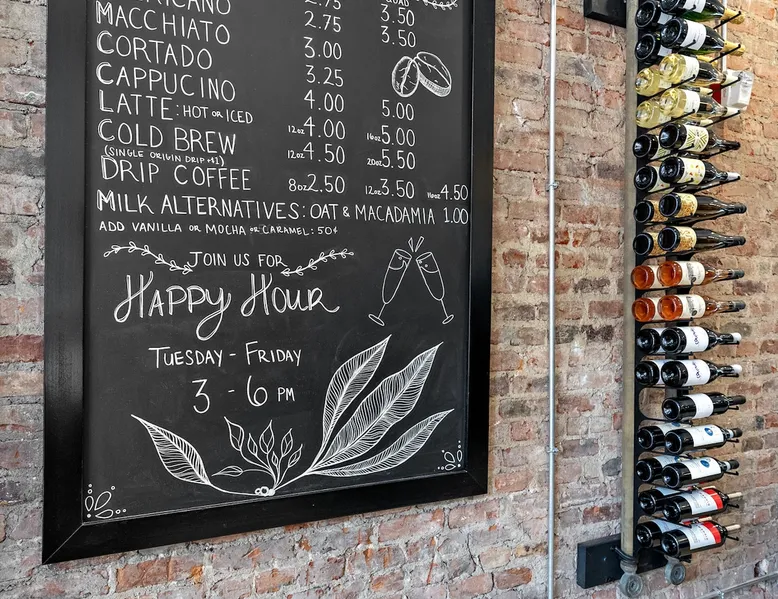 MACCHIATO 2.75 3.50
CORTADO 3.00
CAPPUCINO 3.25
LATTE: HOT OR ICED 4.00 5.00
COLD BREW 12oz 4.00 16oz 5.00
(SINGLE ORIGIN DRIP +$1) 12oz 4.50 20oz 5.50
DRIP COFFEE 8oz 2.50 12oz 3.50 16oz 4.50
MILK ALTERNATIVES: OAT & MACADAMIA 1.00
ADD VANILLA OR MOCHA OR CARAMEL: 50¢
JOIN US FOR
HAPPY HOUR
TUESDAY - FRIDAY
3 - 6 PM